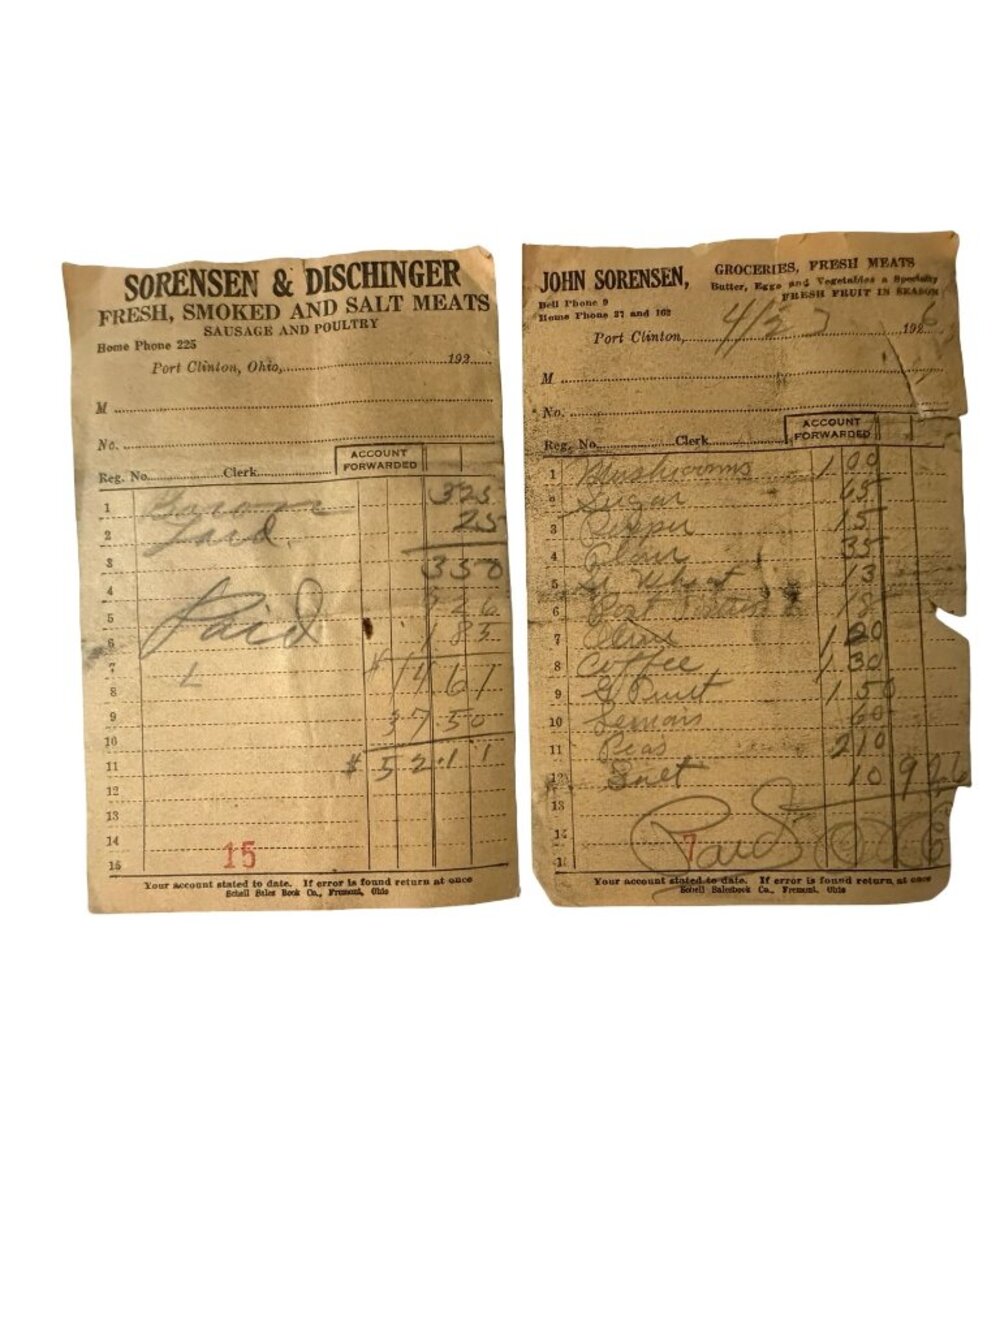 SORENSEN & DISCHINGER
FRESH, SMOKED AND SALT MEATS
SAUSAGE AND POULTRY
Home Phone 225
Port Clinton, Ohio, 192
M
No.
Reg. No. Clerk ACCOUNT FORWARDED
1 Bacon 325
2 Lard. 25
3 350
4 926
5 Paid 185
6
7 L $ 14 61
8
9 37.50
10
11 $ 52.11
12
13
14
15
15
Your account stated to date. If error is found return at once
Schell Sales Book Co., Fremont, Ohio
JOHN SORENSEN, GROCERIES, FRESH MEATS
Butter, Eggs and Vegetables a Specialty
FRESH FRUIT IN SEASON
Bell Phone 9
Home Phone 27 and 162
Port Clinton, 4/27 1926
M
No.
Reg. No. Clerk ACCOUNT FORWARDED
1 Mushrooms 1 00
Sugar 65
3 Pepper 15
4 35
5 Wheat 13
6 Post 18
7 1 20
8 Coffee 1 30
9 G Fruit 1 50
10 Lemons 60
11 Peas 210
12 Suet 10 9 26
13
14 Paid
7
Your account stated to date. If error is found return at once
Schell Salesbook Co., Fremont, Ohio